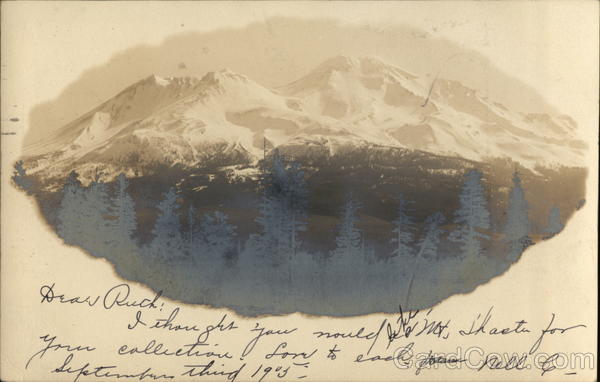 Dear Ruth:
I thought you would like Mt. Shasta for
your collection. Love to each from Nell C–
September third 1905–
CardCow.com